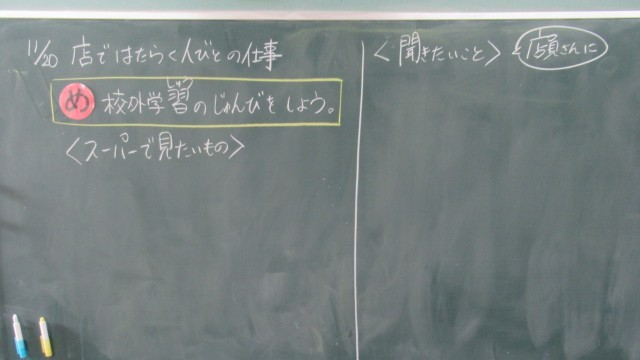 11/20 店ではたらく人びとの仕事
め 校外学習のじゅんびをしよう。
しゅう
<スーパーで見たいもの>
<聞きたいこと> 店員さんに